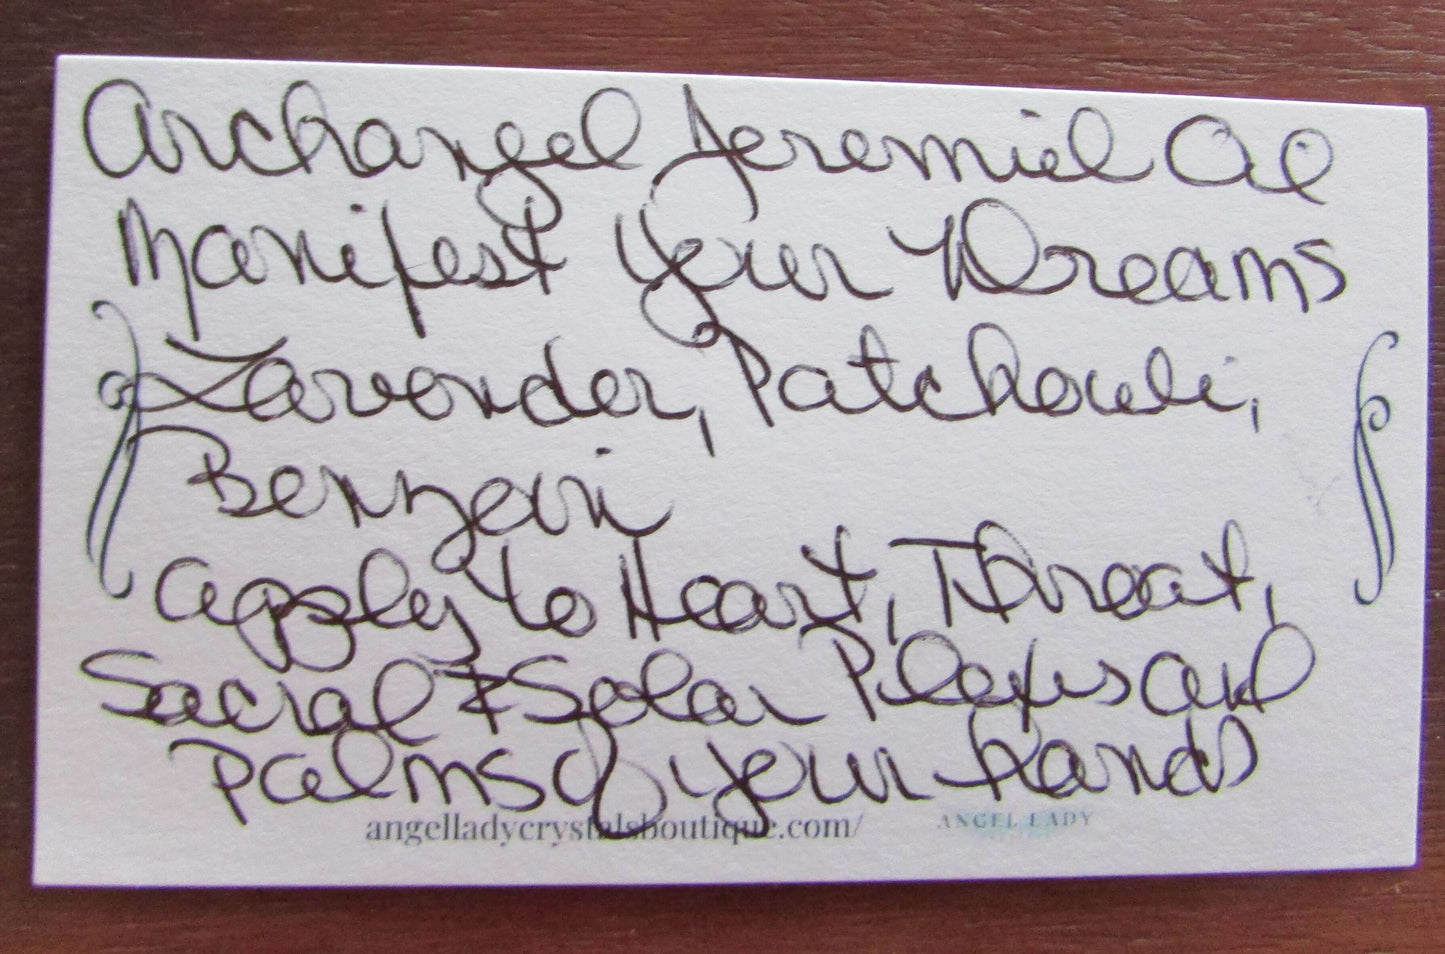 Archangel Jeremiel Oil
Manifest Your Dreams
Lavender, Patchouli,
Benzoin
Apply to Heart, Throat,
Sacral & Solar Plexus and
palms of your hands
angelladycrystalsboutique.com/ ANGEL LADY